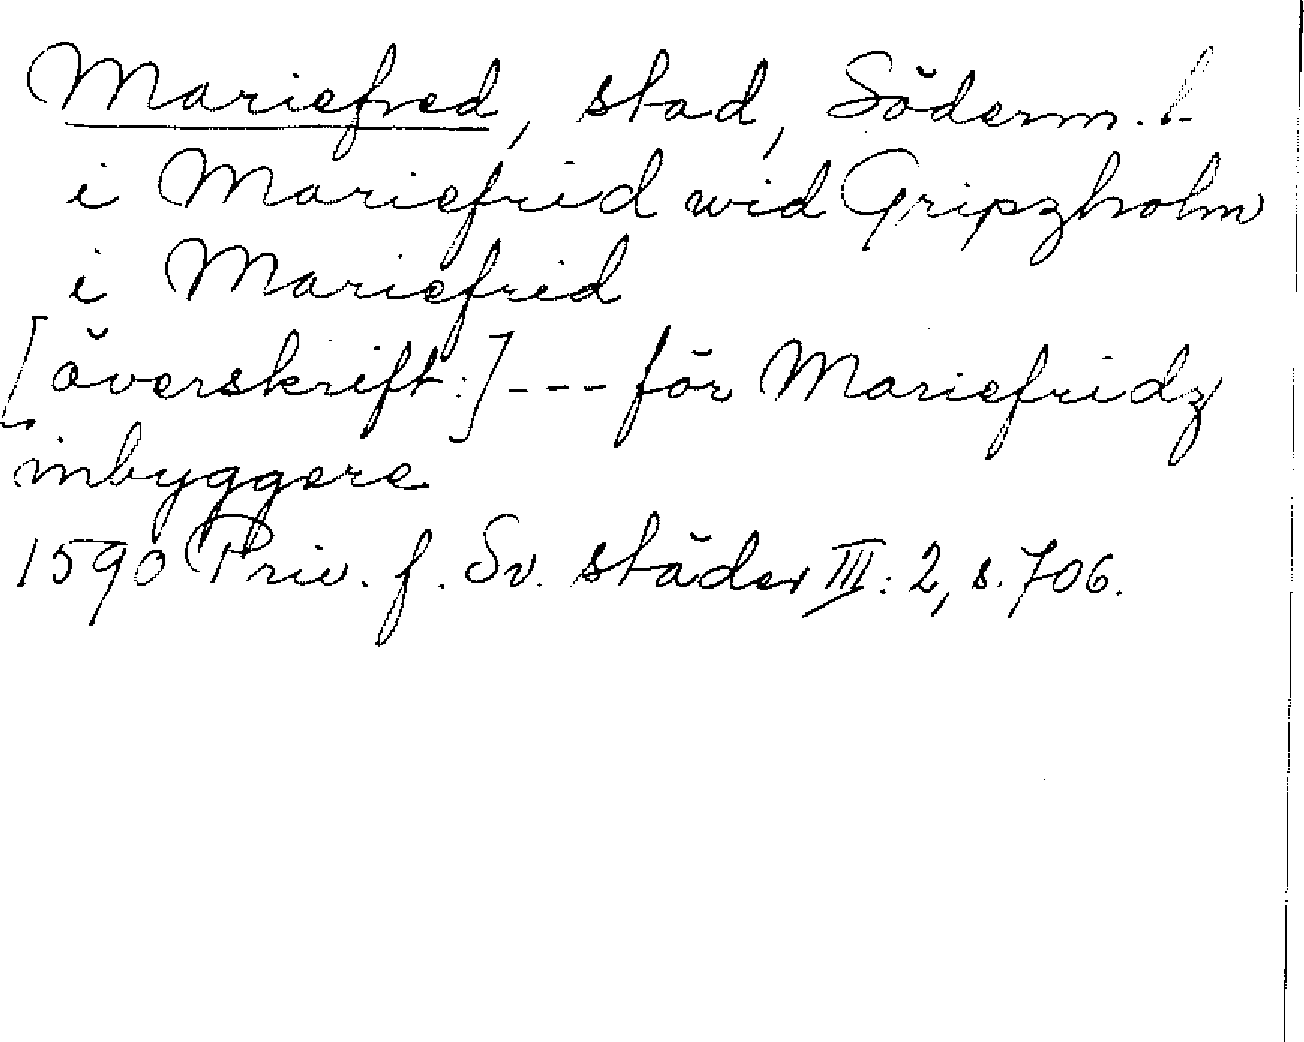 Mariefred, stad, Söderm. l.
i Mariefrid wid Gripzholm
i Mariefrid
[överskrift:] --- för Mariefridz
inbyggere
1590 Priv. f. Sv. städer III: 2, s. 706.